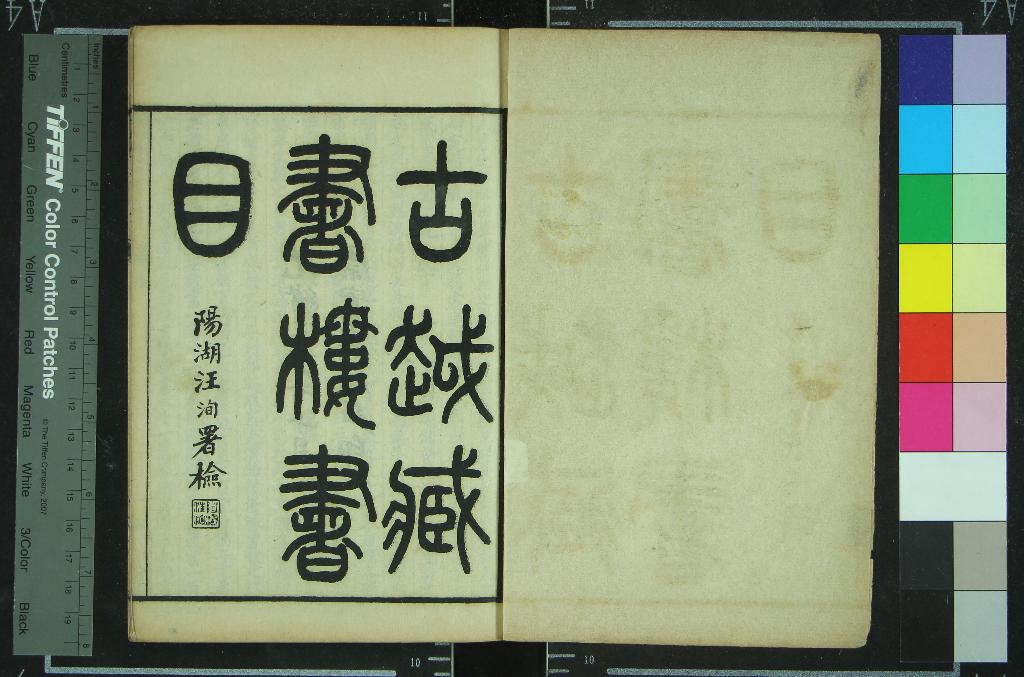 古越藏
書樓書
目
陽湖汪洵署檢
TIFFEN® Color Control Patches
© The Tiffen Company, 2007
Inches
Centimetres
1 2 3 4 5 6 7 8
1 2 3 4 5 6 7 8 9 10 11 12 13 14 15 16 17 18 19
Blue Cyan Green Yellow Red Magenta White 3/Color Black
A4
A4
11
11
10
10